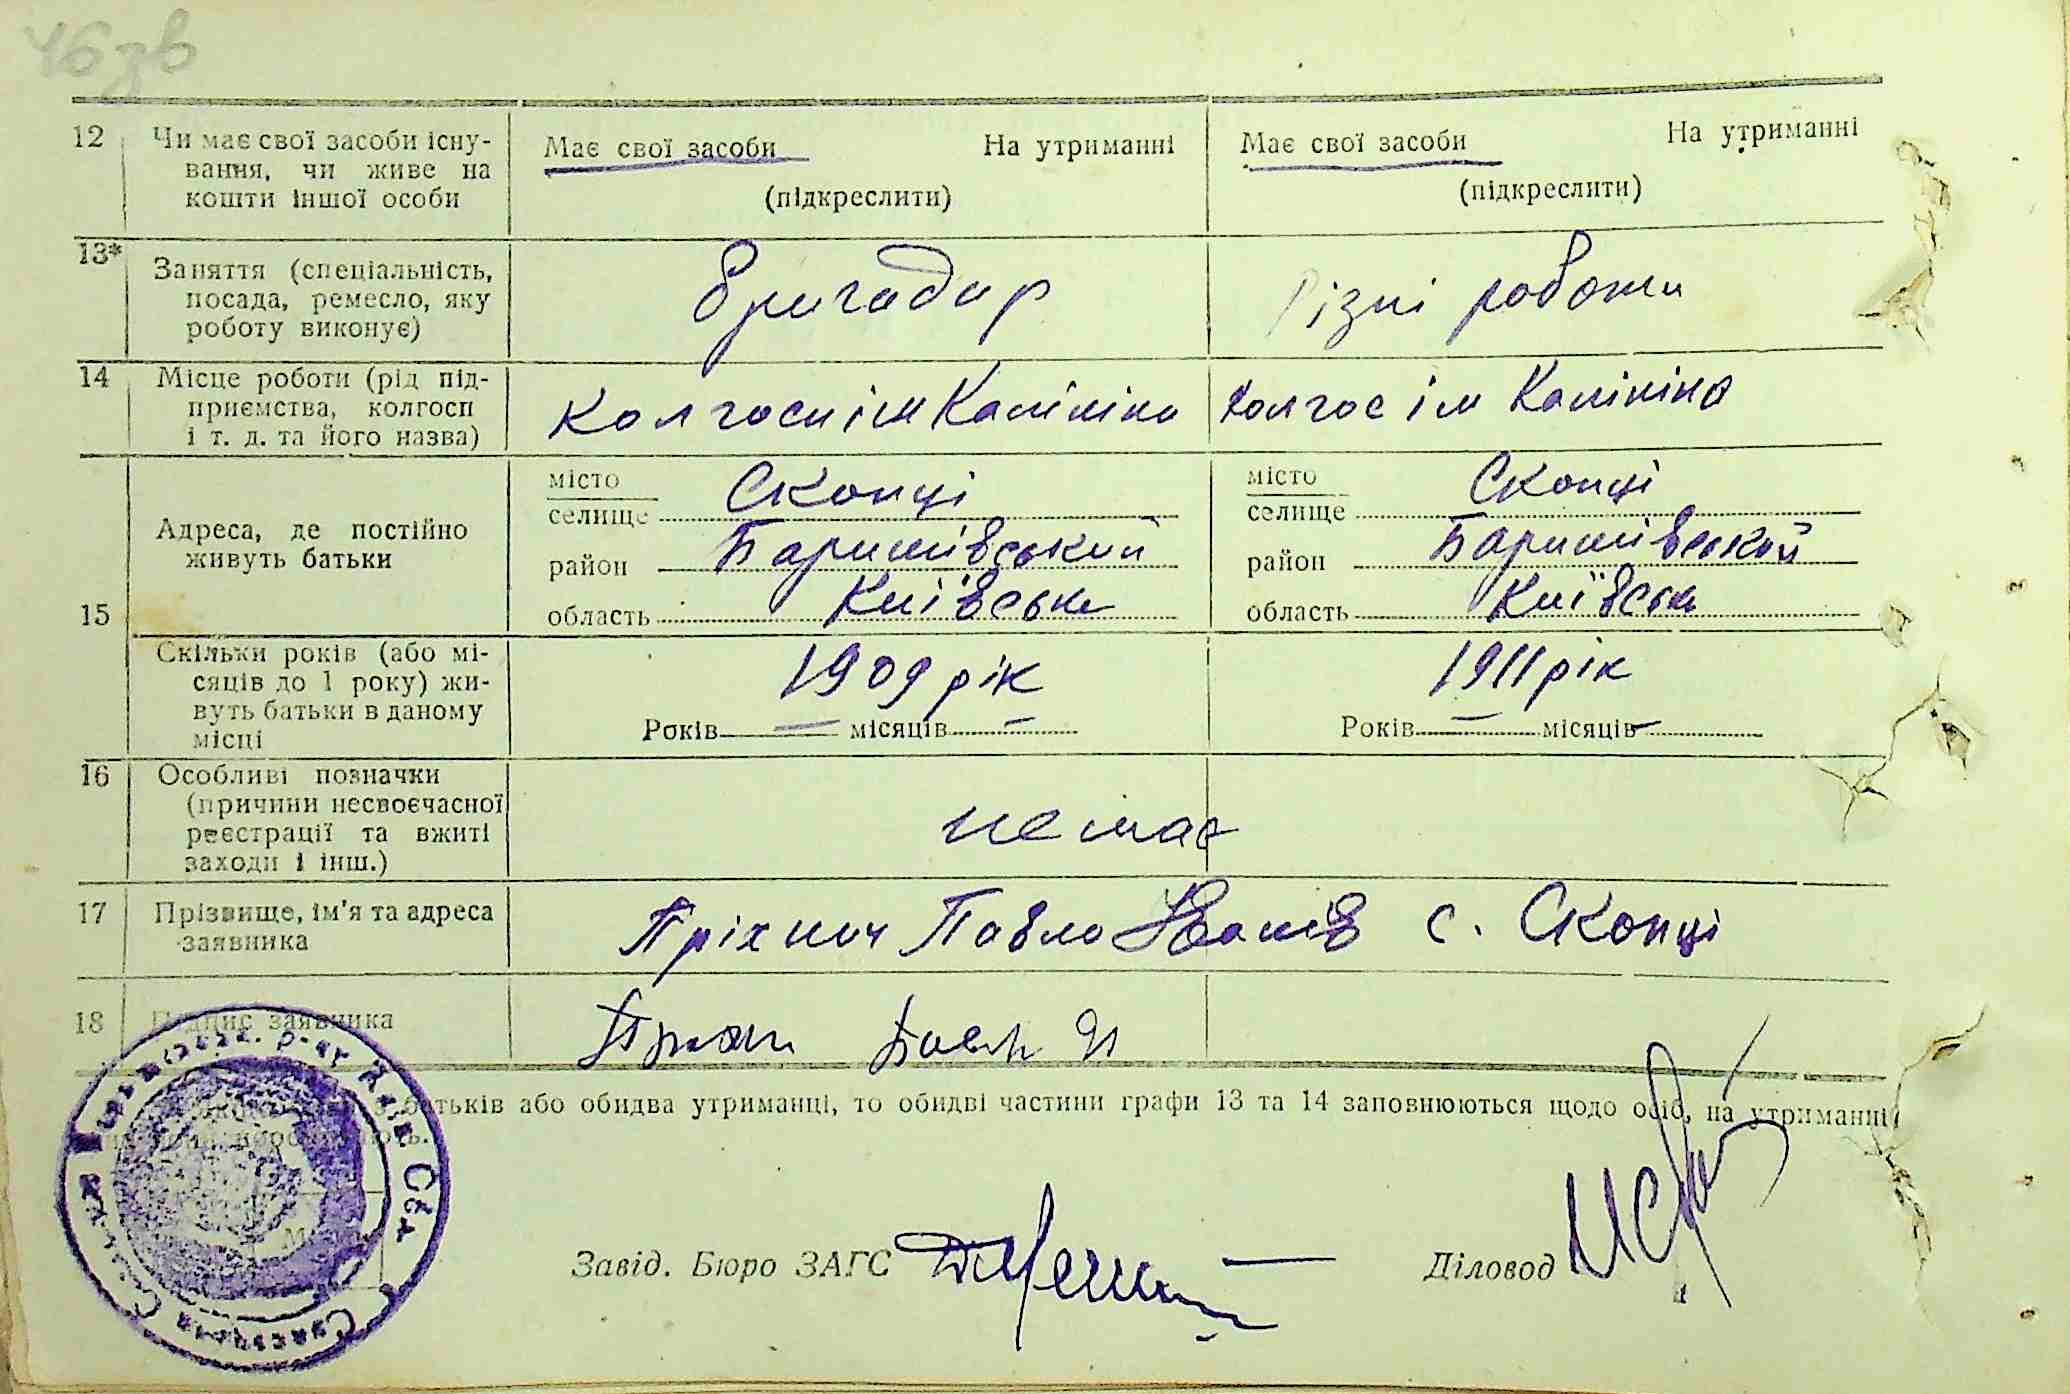 46зв
12 Чи має свої засоби існу-
вання, чи живе на
кошти іншої особи
Має свої засоби На утриманні
(підкреслити)
Має свої засоби На утриманні
(підкреслити)
13* Заняття (спеціальність,
посада, ремесло, яку
роботу виконує)
бригадир
Різні роботи
14 Місце роботи (рід під-
приємства, колгосп
і т. д. та його назва)
Колгосп ім Калініна
Колгос ім Калініна
15
Адреса, де постійно
живуть батьки
місто
селище Скопці
район Баришівський
область Київськ
місто
селище Скопці
район Баришівський
область Київськ
Скільки років (або мі-
сяців до 1 року) жи-
вуть батьки в даному
місці
1909 рік
Років — місяців —
1911 рік
Років — місяців —
16 Особливі позначки
(причини несвоєчасної
реєстрації та вжиті
заходи і інш.)
немає
17 Прізвище, ім'я та адреса
заявника
Пріхнич Павло Іванів с. Скопці
18 Підпис заявника
батьків або обидва утриманці, то обидві частини графи 13 та 14 заповнюються щодо осіб, на утриманні
Завід. Бюро ЗАГС
Діловод